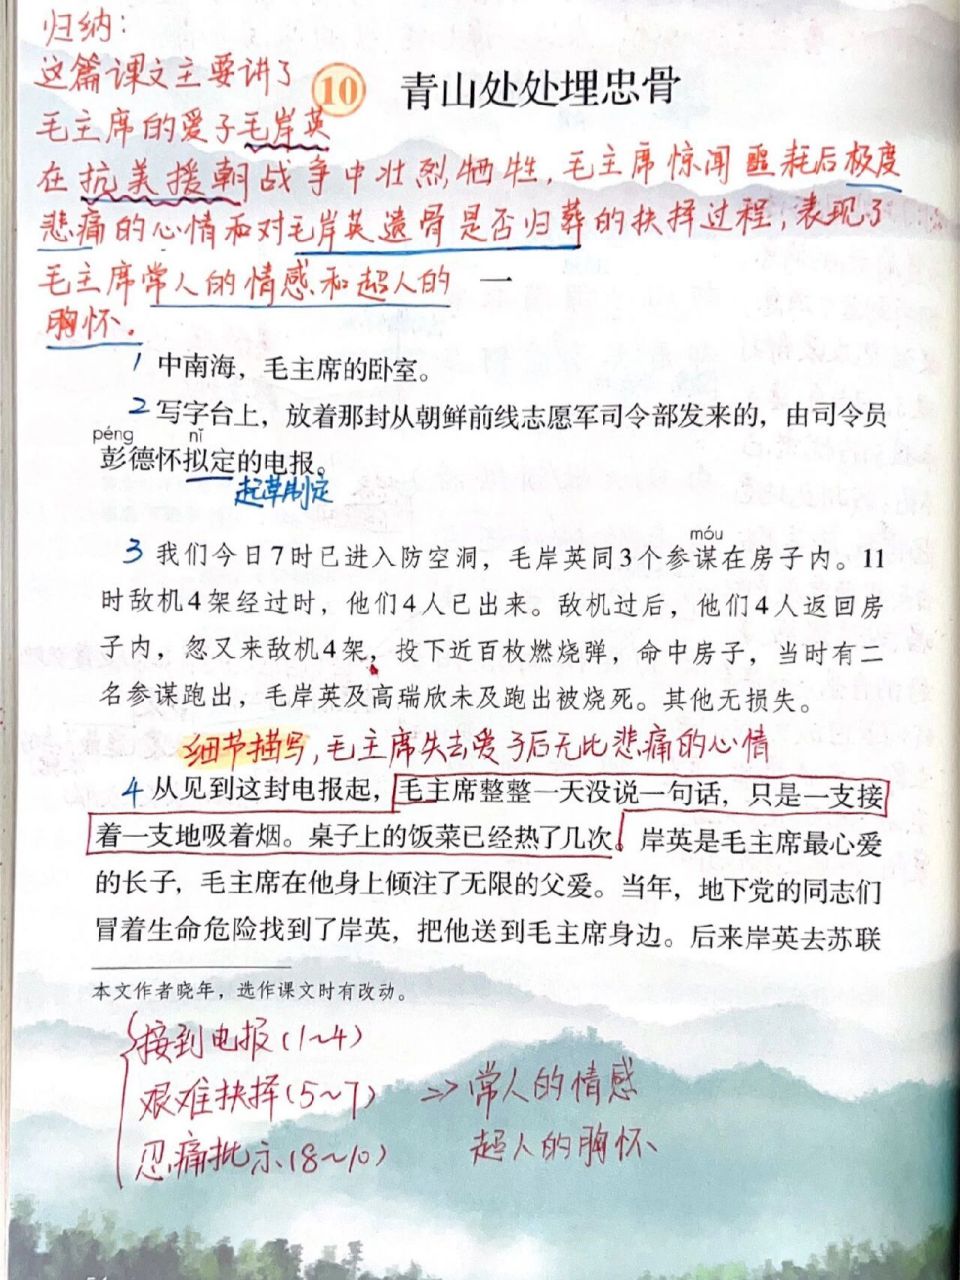 归纳:
这篇课文主要讲了
10 青山处处埋忠骨
毛主席的爱子毛岸英
在抗美援朝战争中壮烈牺牲,毛主席惊闻噩耗后极度
悲痛的心情和对毛岸英遗骨是否归葬的抉择过程,表现了
毛主席常人的情感和超人的
一
胸怀。
1 中南海，毛主席的卧室。
2 写字台上，放着那封从朝鲜前线志愿军司令部发来的，由司令员
péng nǐ
彭德怀拟定的电报。
起草制定
móu
3 我们今日7时已进入防空洞，毛岸英同3个参谋在房子内。11
时敌机4架经过时，他们4人已出来。敌机过后，他们4人返回房
子内，忽又来敌机4架，投下近百枚燃烧弹，命中房子，当时有二
名参谋跑出，毛岸英及高瑞欣未及跑出被烧死。其他无损失。
细节描写,毛主席失去爱子后无比悲痛的心情
4 从见到这封电报起，毛主席整整一天没说一句话，只是一支接
着一支地吸着烟。桌子上的饭菜已经热了几次。岸英是毛主席最心爱
的长子，毛主席在他身上倾注了无限的父爱。当年，地下党的同志们
冒着生命危险找到了岸英，把他送到毛主席身边。后来岸英去苏联
本文作者晓年，选作课文时有改动。
接到电报(1~4)
艰难抉择(5~7) ⇒ 常人的情感
忍痛批示(8~10) 超人的胸怀